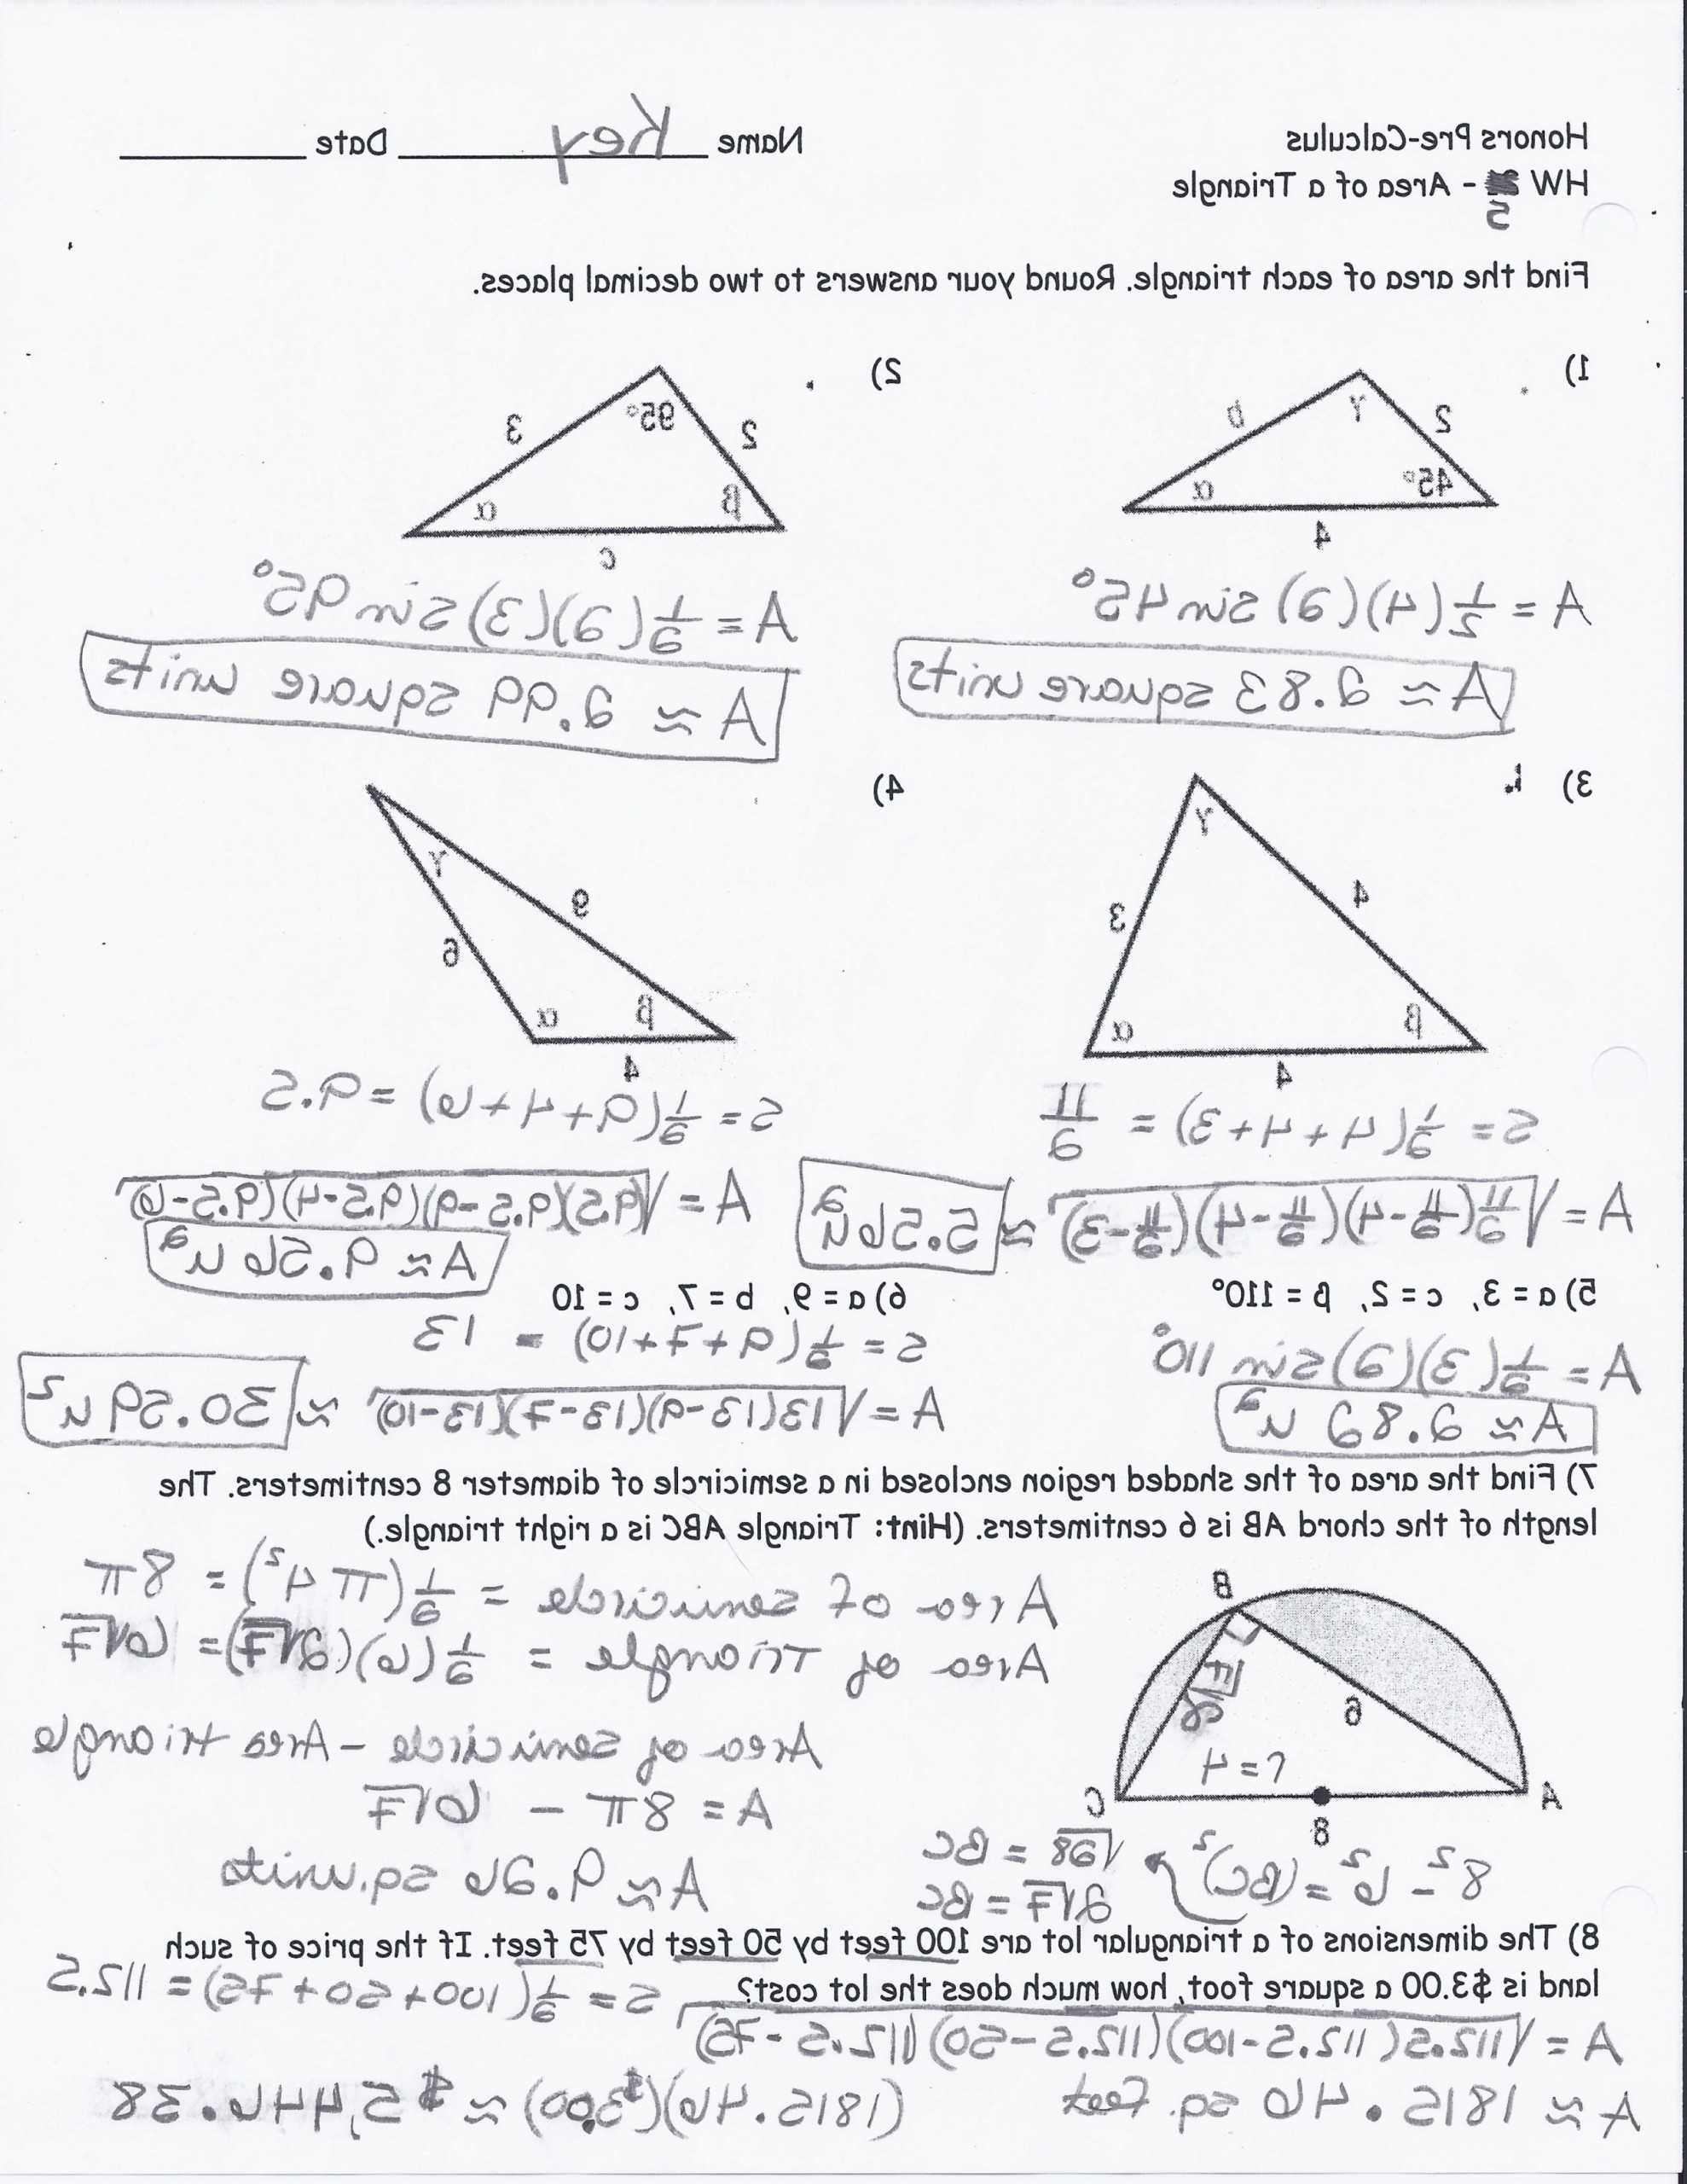 Honors Pre-Calculus
Name Key Date
HW 5 - Area of a Triangle
Find the area of each triangle. Round your answers to two decimal places.
1)
γ
2
b
45°
α
4
A = 1/2(4)(2) sin 45°
A ≈ 2.83 square units
2)
95°
2
3
β
α
c
A = 1/2(2)(3) sin 95°
A ≈ 2.99 square units
3)
γ
4
3
β
α
4
s = 1/2(4+4+3) = 11/2
A = √11/2(11/2-4)(11/2-4)(11/2-3) ≈ 5.56u²
4)
γ
9
6
β
α
4
s = 1/2(9+4+6) = 9.5
A = √(9.5)(9.5-9)(9.5-4)(9.5-6)
A ≈ 9.56 u²
5) a = 3, c = 2, β = 110°
A = 1/2(3)(2) sin 110°
A ≈ 2.82 u²
6) a = 9, b = 7, c = 10
s = 1/2(9+7+10) = 13
A = √13(13-9)(13-7)(13-10) ≈ 30.59 u²
7) Find the area of the shaded region enclosed in a semicircle of diameter 8 centimeters. The
length of the chord AB is 6 centimeters. (Hint: Triangle ABC is a right triangle.)
B
2√7
6
r=4
A
C
8
8² - 6² = (BC)²
√28 = BC
2√7 = BC
Area of semicircle = 1/2(π 4²) = 8π
Area of Triangle = 1/2(6)(2√7) = 6√7
Area of semicircle - Area triangle
A = 8π - 6√7
A ≈ 9.26 sq. units
8) The dimensions of a triangular lot are 100 feet by 50 feet by 75 feet. If the price of such
land is $3.00 a square foot, how much does the lot cost?
s = 1/2(100+50+75) = 112.5
A = √112.5(112.5-100)(112.5-50)(112.5-75)
A ≈ 1815.46 sq. feet
(1815.46)($3.00) ≈ $5,446.38